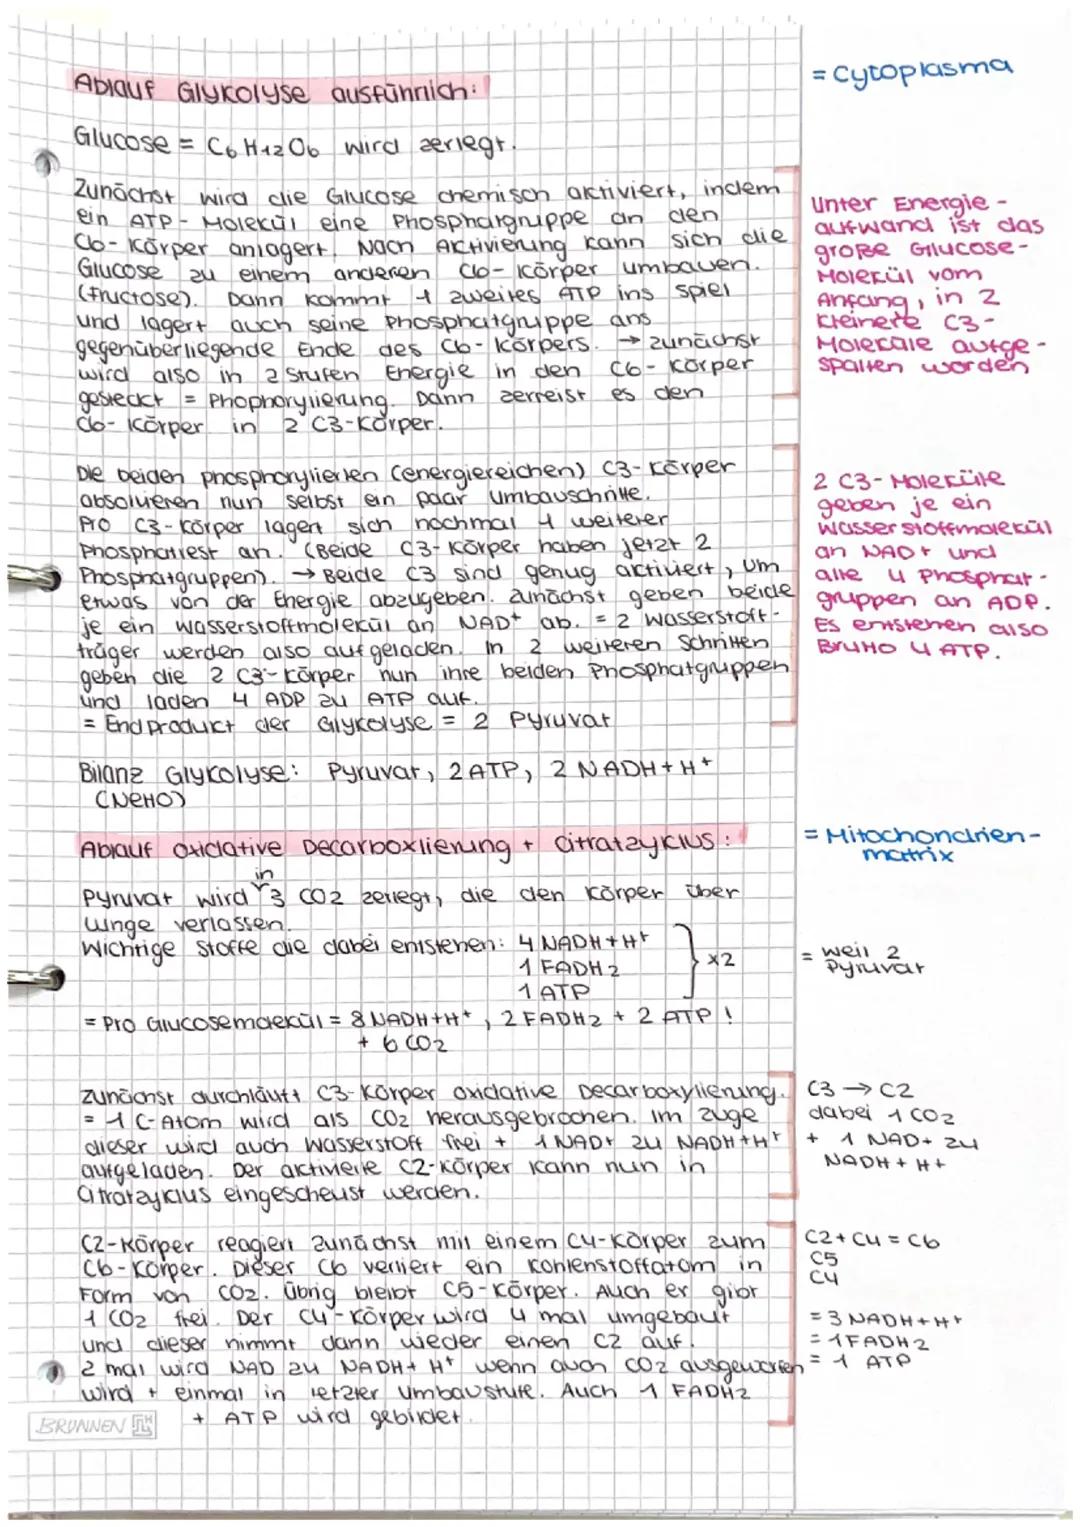 = Cytoplasma
Ablauf Glykolyse ausführlich:
Glucose = C6 H12 O6 wird zerlegt.
Zunächst wird die Glucose chemisch aktiviert, indem
ein ATP - Molekül eine Phosphatgruppe an den
C6-Körper anlagert. Nach Aktivierung kann sich die
Glucose zu einem anderen C6-Körper umbauen.
(Fructose). Dann kommt 1 zweites ATP ins Spiel
und lagert auch seine Phosphatgruppe ans
gegenüberliegende Ende des C6-Körpers. → zunächst
wird also in 2 Stufen Energie in den C6-Körper
gesteckt = Phophorylierung. Dann zerreist es den
C6-Körper in 2 C3-Körper.
Unter Energie-
aufwand ist das
große Glucose-
Molekül vom
Anfang, in 2
kleinere C3-
Moleküle aufge-
spalten worden
Die beiden phosphorylierten (energiereichen) C3-Körper
absolvieren nun selbst ein paar Umbauschritte.
Pro C3-Körper lagert sich nochmal 1 weiterer
Phosphatrest an. (Beide C3-Körper haben jetzt 2
Phosphatgruppen). → Beide C3 sind genug aktiviert, um
etwas von der Energie abzugeben. Zunächst geben beide
je ein Wasserstoffmolekül an NAD+ ab. = 2 Wasserstoff-
träger werden also aufgeladen. In 2 weiteren Schritten
geben die 2 C3-Körper nun ihre beiden Phosphatgruppen
und laden 4 ADP zu ATP auf.
= Endprodukt der Glykolyse = 2 Pyruvat
2 C3-Moleküle
geben je ein
Wasserstoffmolekül
an NAD+ und
alle 4 Phosphat-
gruppen an ADP.
Es entstehen also
Brutto 4 ATP.
Bilanz Glykolyse: Pyruvat, 2 ATP, 2 NADH+H+
(Netto)
Ablauf oxidative Decarboxlierung + Citratzyklus:
= Mitochondrien-
matrix
in
Pyruvat wird 3 CO2 zerlegt, die den Körper über
Lunge verlassen.
Wichtige Stoffe die dabei entstehen: 4 NADH+H+
1 FADH2
1 ATP
x2
= weil 2
Pyruvat
= Pro Glucosemolekül = 8 NADH+H+, 2 FADH2 + 2 ATP!
+ 6 CO2
Zunächst durchläuft C3-Körper oxidative Decarboxylierung.
= 1 C-Atom wird als CO2 herausgebrochen. Im Zuge
dieser wird auch Wasserstoff frei + 1 NAD+ zu NADH+H+
aufgeladen. Der aktivierte C2-Körper kann nun in
Citratzyklus eingescheust werden.
C3 → C2
dabei 1 CO2
+ 1 NAD+ zu
NADH + H+
C2-Körper reagiert zunächst mit einem C4-Körper zum
C6-Körper. Dieser C6 verliert ein Kohlenstoffatom in
Form von CO2. Übrig bleibt C5-Körper. Auch er gibt
1 CO2 frei. Der C4-Körper wird 4 mal umgebaut
und dieser nimmt dann wieder einen C2 auf.
2 mal wird NAD zu NADH+ H+ wenn auch CO2 ausgeworfen
wird + einmal in letzter Umbaustufe. Auch 1 FADH2
+ ATP wird gebildet.
C2+C4 = C6
C5
C4
= 3 NADH+H+
= 1 FADH2
= 1 ATP
BRUNNEN